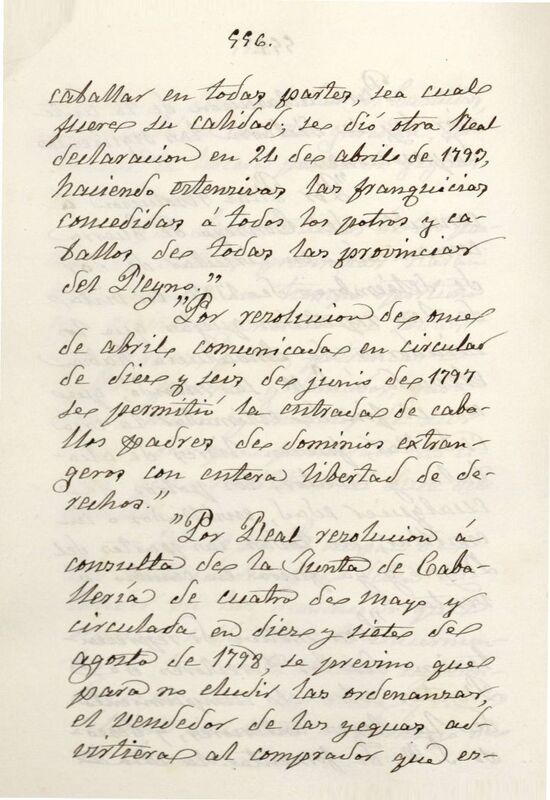 996.
caballar en todas partes, sea cual
fuere su calidad; se dió otra Real
declaracion en 24 de abril de 1793,
haciendo estensivas las franquicias
concedidas á todos los potros y ca-
ballos de todas las provincias
del Reyno."
"Por resolucion de once
de abril comunicada en circular
de diez y seis de junio de 1797
se permitió la entrada de caba-
llos padres de dominios extran-
geros con entera libertad de de-
rechos."
"Por Real resolucion á
consulta de la Junta de Caba-
lleria de cuatro de mayo y
circulada en diez y siete de
agosto de 1798, se previno que
para no eludir las ordenanzas,
el vendedor de las yeguas ad-
virtiera al comprador que es-